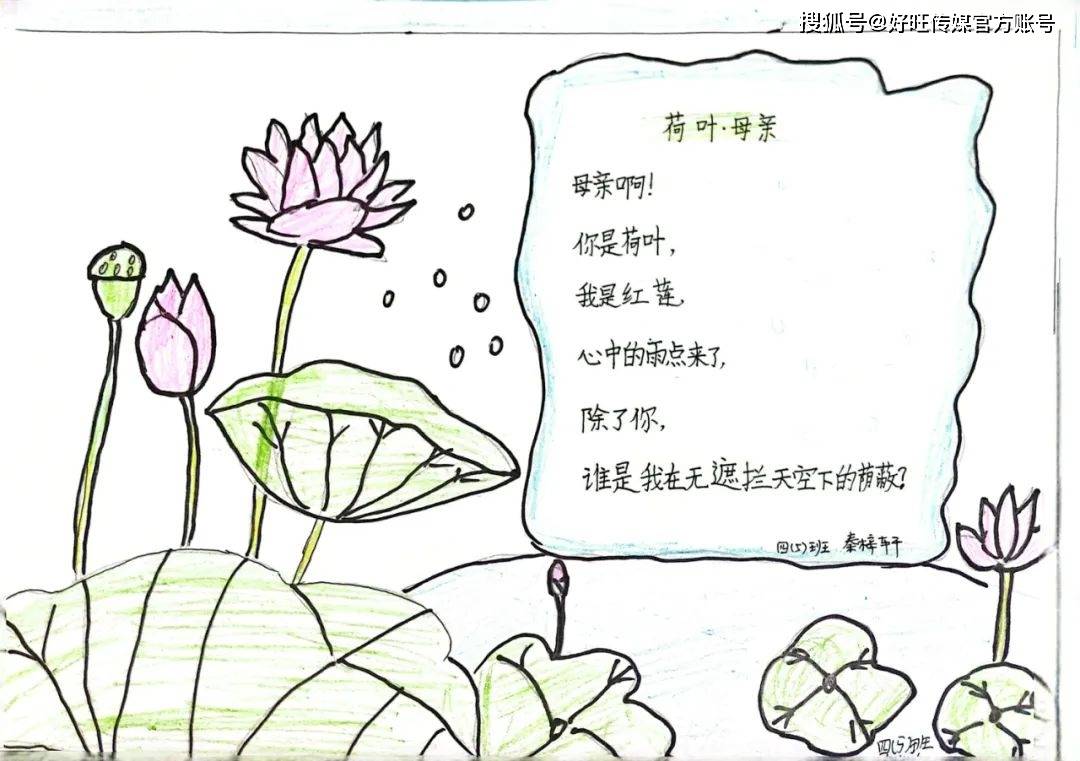 搜狐号@好旺传媒官方账号
荷叶·母亲
母亲啊!
你是荷叶,
我是红莲,
心中的雨点来了,
除了你,
谁是我在无遮拦天空下的荫蔽?
四(5)班 秦梓轩
四(5)班